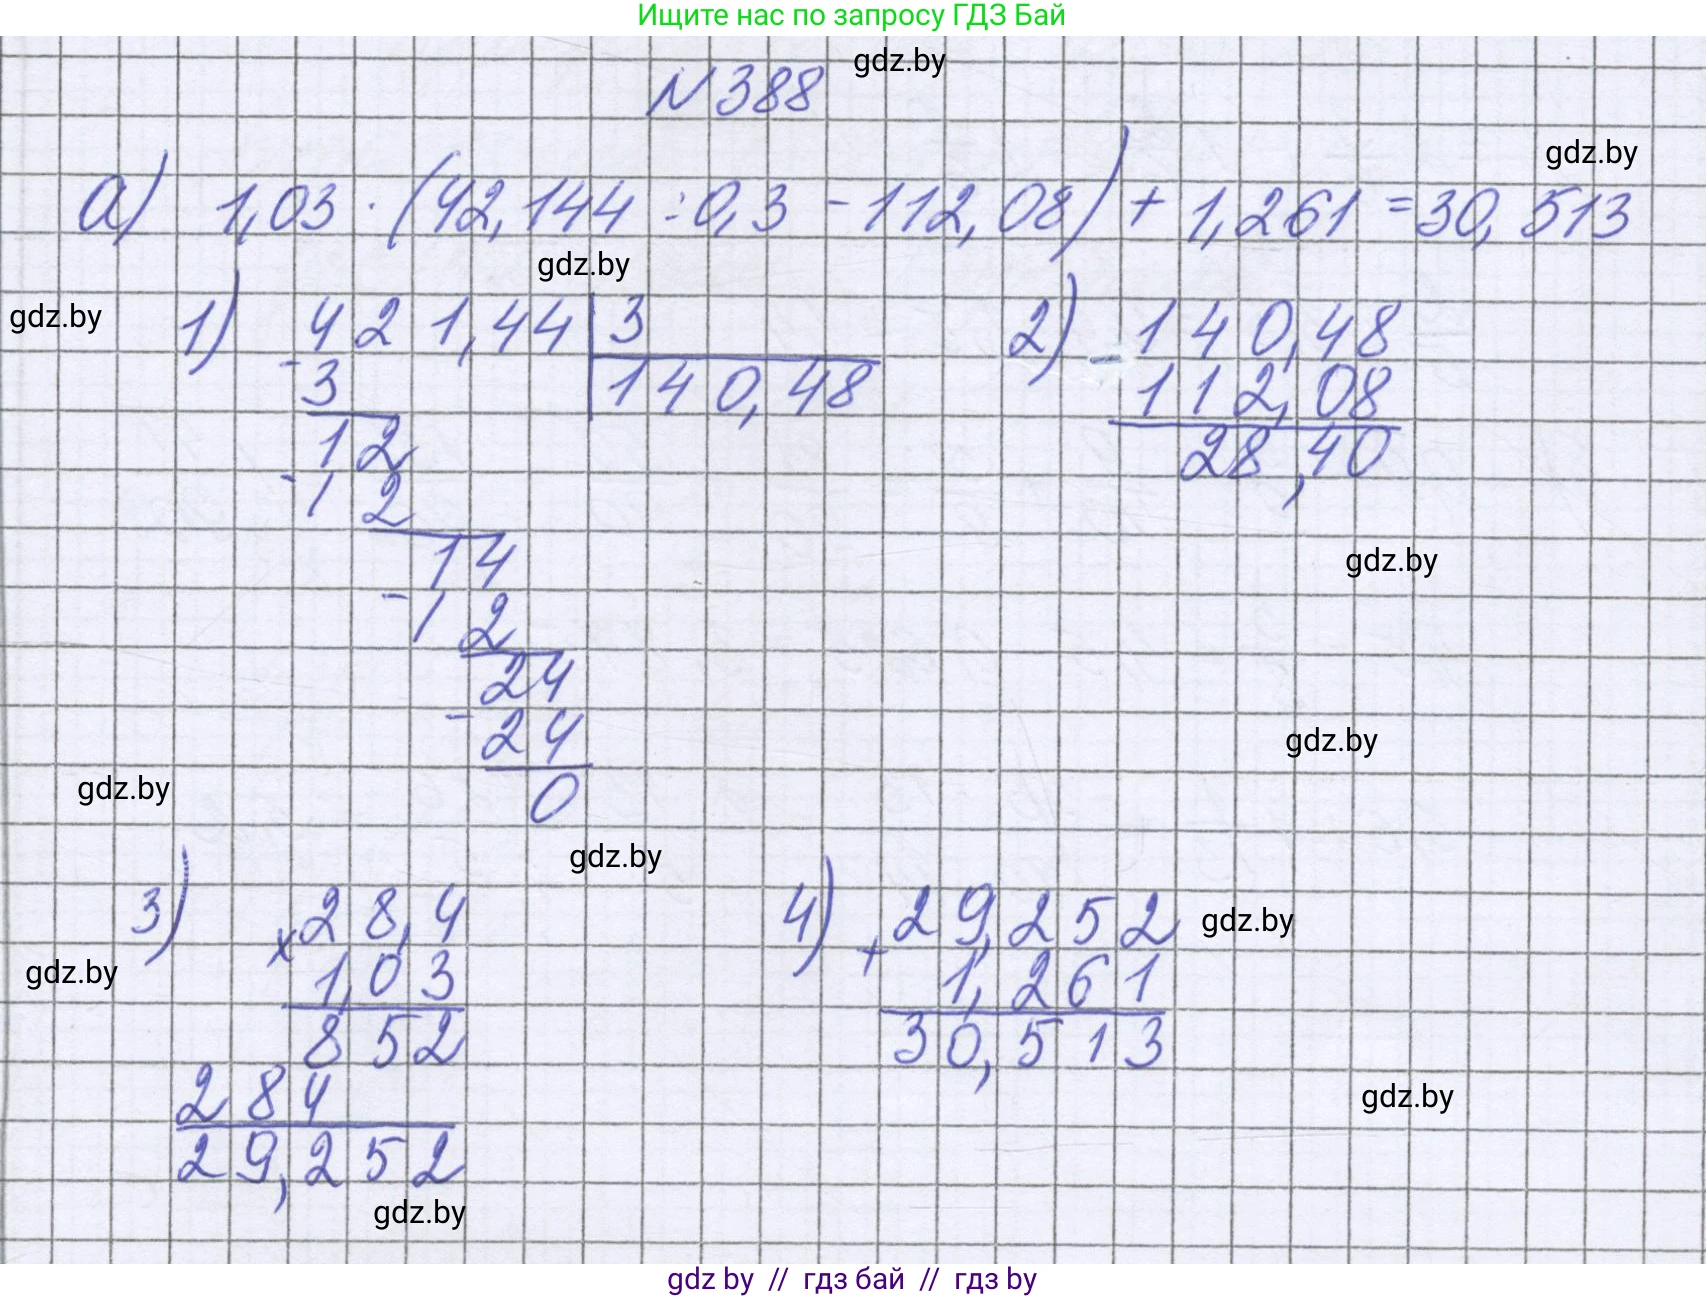 Ищите нас по запросу ГДЗ Бай
gdz.by
N 388
gdz.by
а) 1,03 · (42,144 : 0,3 - 112,08) + 1,261 = 30,513
gdz.by
gdz.by
1) 421,44 | 3
- 3
140,48
12
- 12
14
- 12
24
- 24
0
2) - 140,48
112,08
28,40
gdz.by
gdz.by
gdz.by
gdz.by
3) x 28,4
1,03
852
284
29,252
4) + 29,252
1,261
30,513
gdz.by
gdz.by
gdz.by
gdz.by
gdz by // гдз бай // гдз by